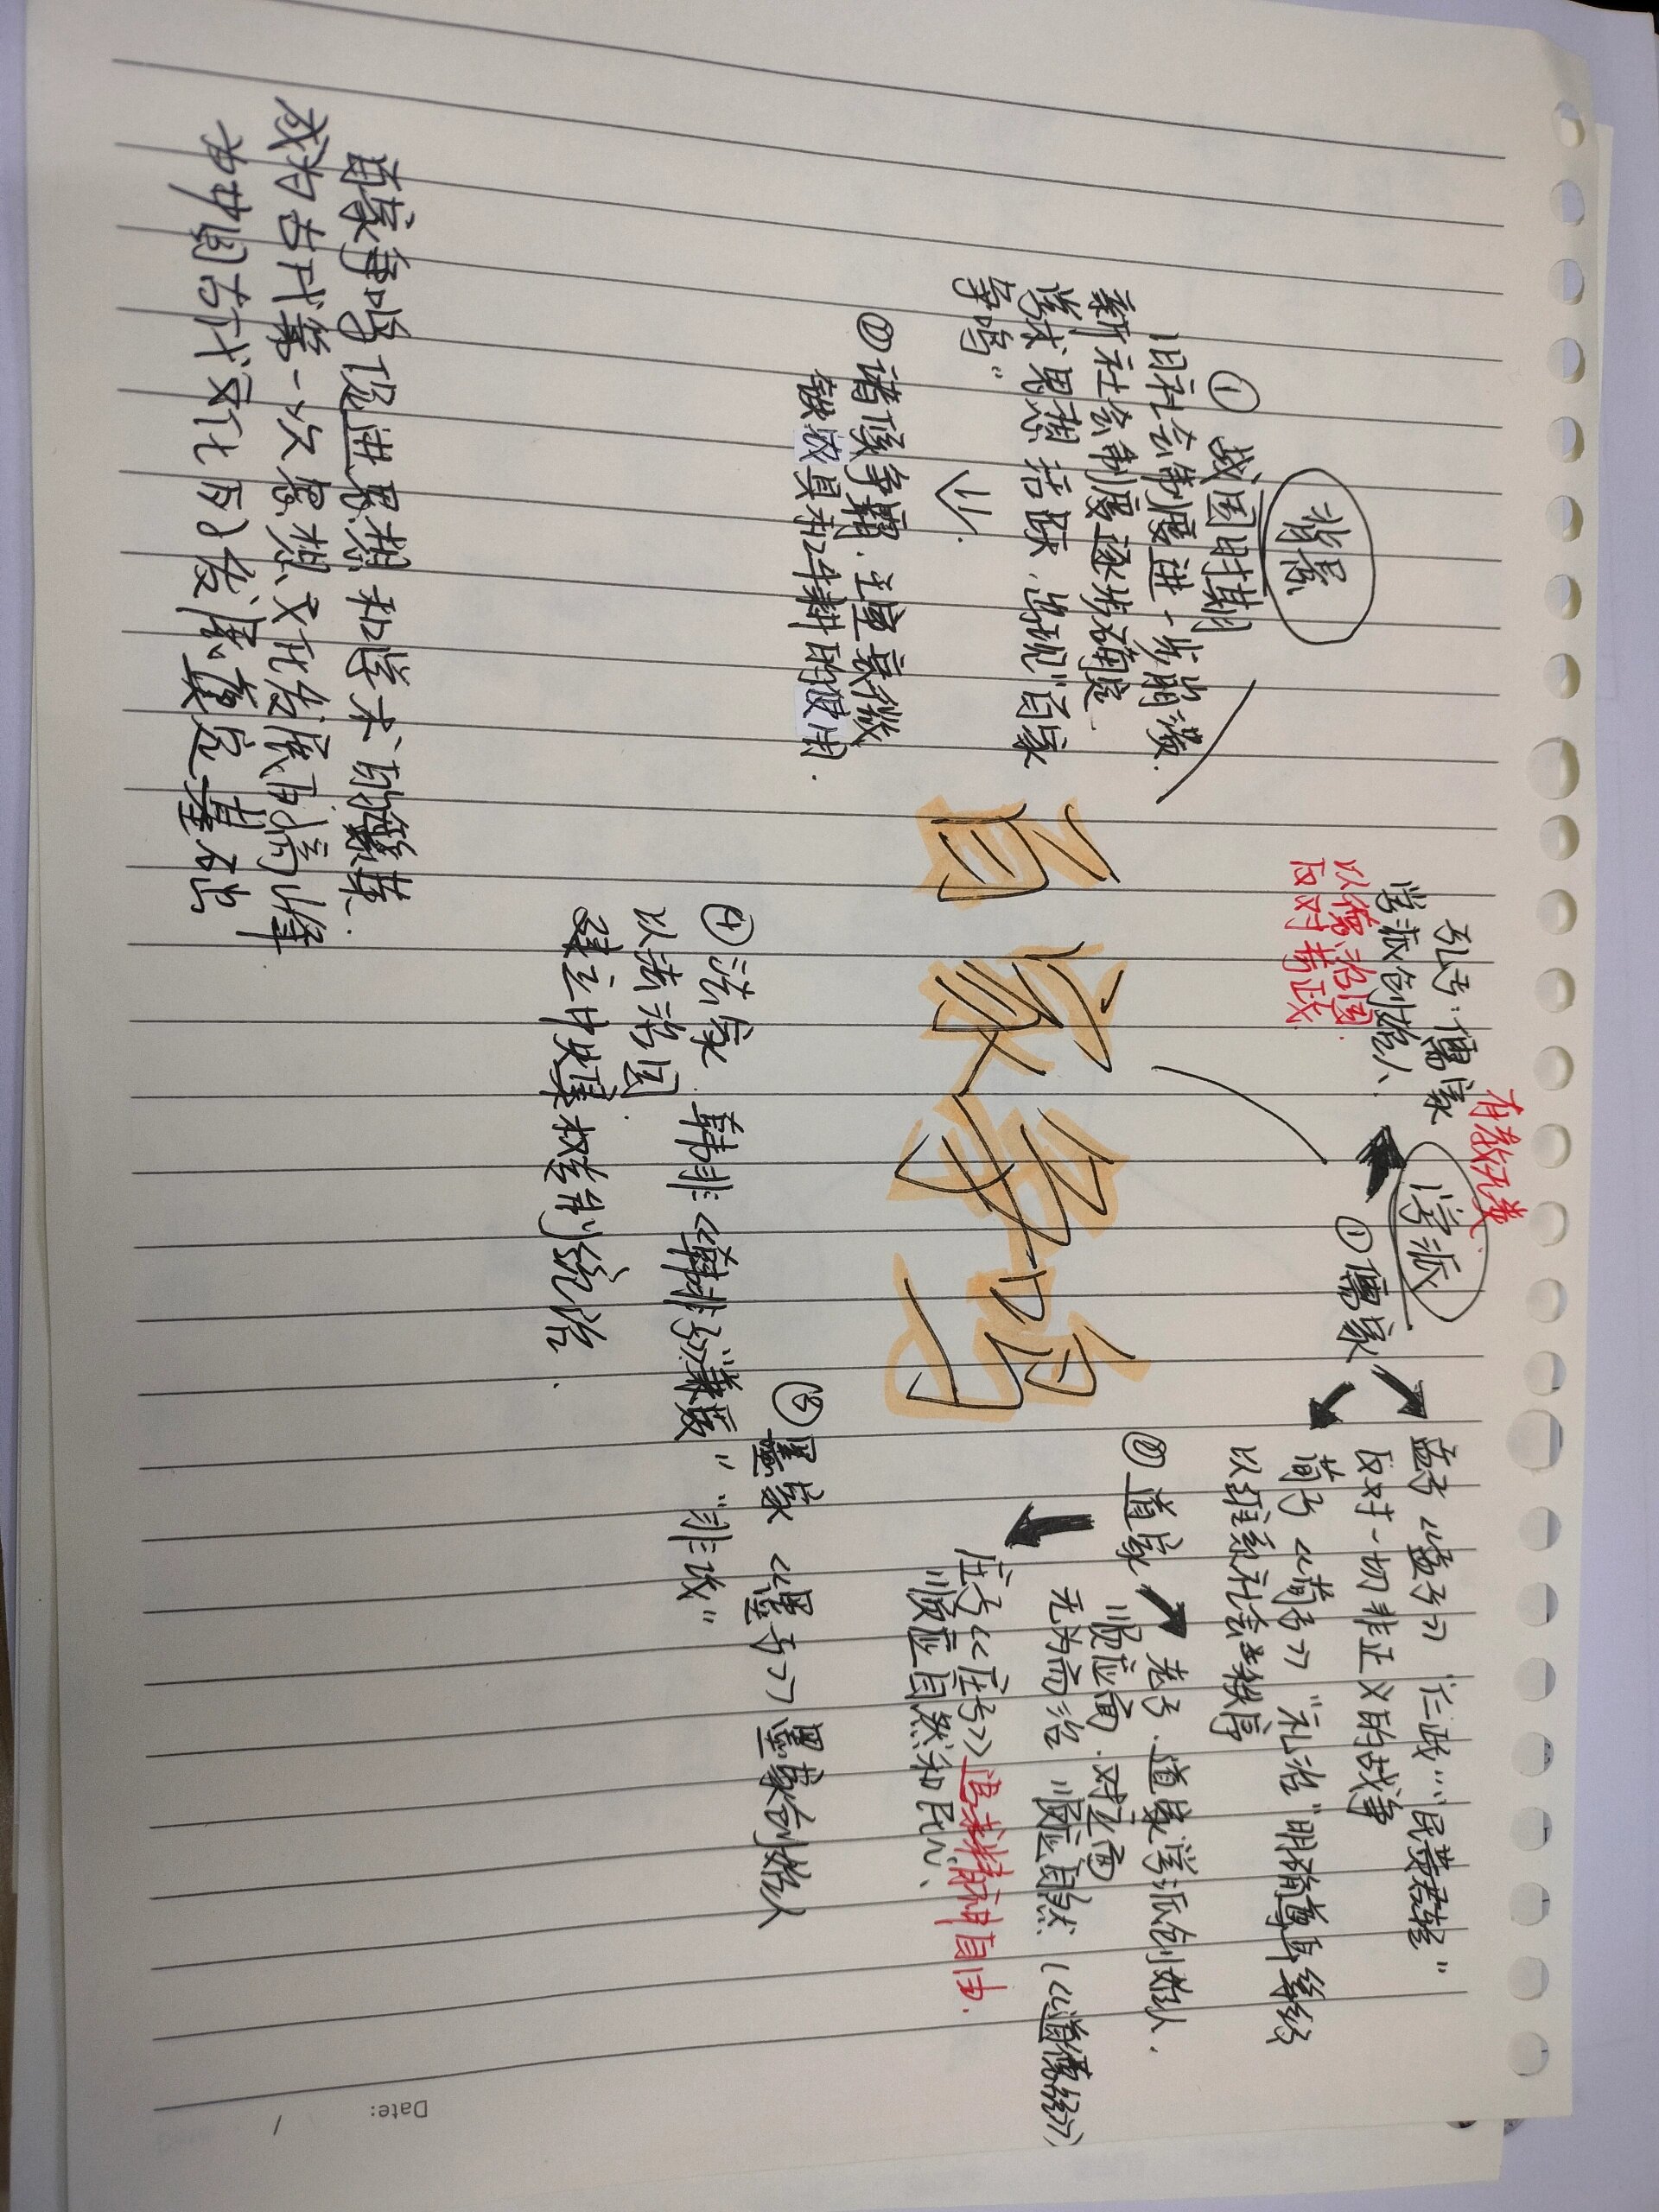 背景
① 战国时期
旧社会制度进一步崩溃.
新社会制度逐步确定.
学术思想活跃、出现"百家
争鸣"
②诸侯争霸.王室衰微
铁农具和牛耕的使用.
百家争鸣
有教无类
学派
孔子·儒家
学派创始人
以德治国
反对苛政
①儒家
孟子《孟子》"仁政""民贵君轻"
反对一切非正义的战争
荀子《荀子》"礼治"明确尊卑等级
以维系社会秩序
② 道家
老子.道家学派创始人.
顺应面.对立面
无为而治 顺应自然(《道德经》)
庄子《庄子》追求精神自由.
顺应自然和民心、
③墨家《墨子》墨家创始人
"非攻"
④法家 韩非《韩非子》
以法治国.
建立中央集权专制统治.
百家争鸣促进思想和学术的繁荣.
成为古代第一次思想文化发展的高峰
为中国古代文化的发展奠定基础
Date: